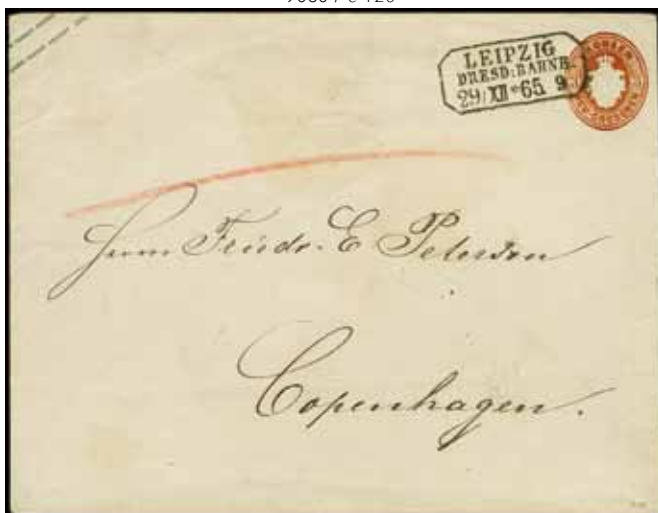 LEIPZIG
DRESD: BAHNH.
29/XII*65. 9
Herrn Friedr. E Petersen
Copenhagen.